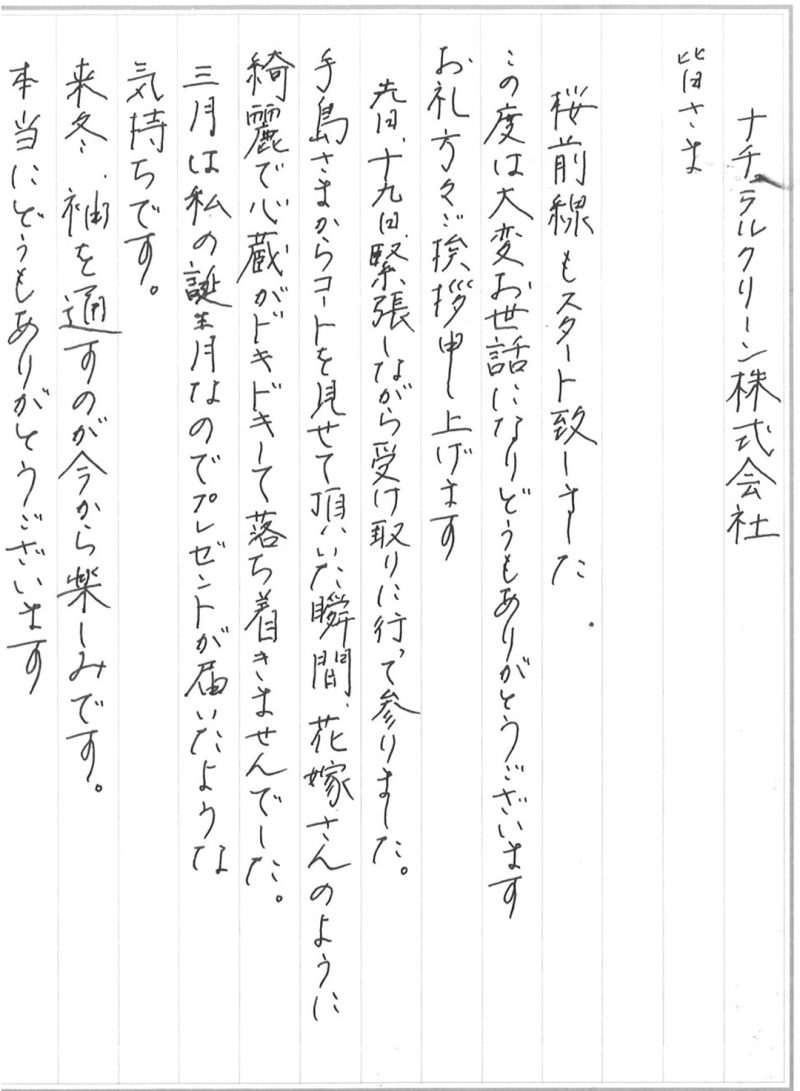 ナチュラルクリーン株式会社
皆さま
桜前線もスタート致しました.
この度は大変お世話になりどうもありがとうございます
お礼方々ご挨拶申し上げます
先日、十九日、緊張しながら受け取りに行って参りました。
手島さまからコートを見せて頂いた瞬間、花嫁さんのように
綺麗で心蔵がドキドキして落ち着きませんでした。
三月は私の誕生月なのでプレゼントが届いたような
気持ちです。
来冬、袖を通すのが今から楽しみです。
本当にどうもありがとうございます